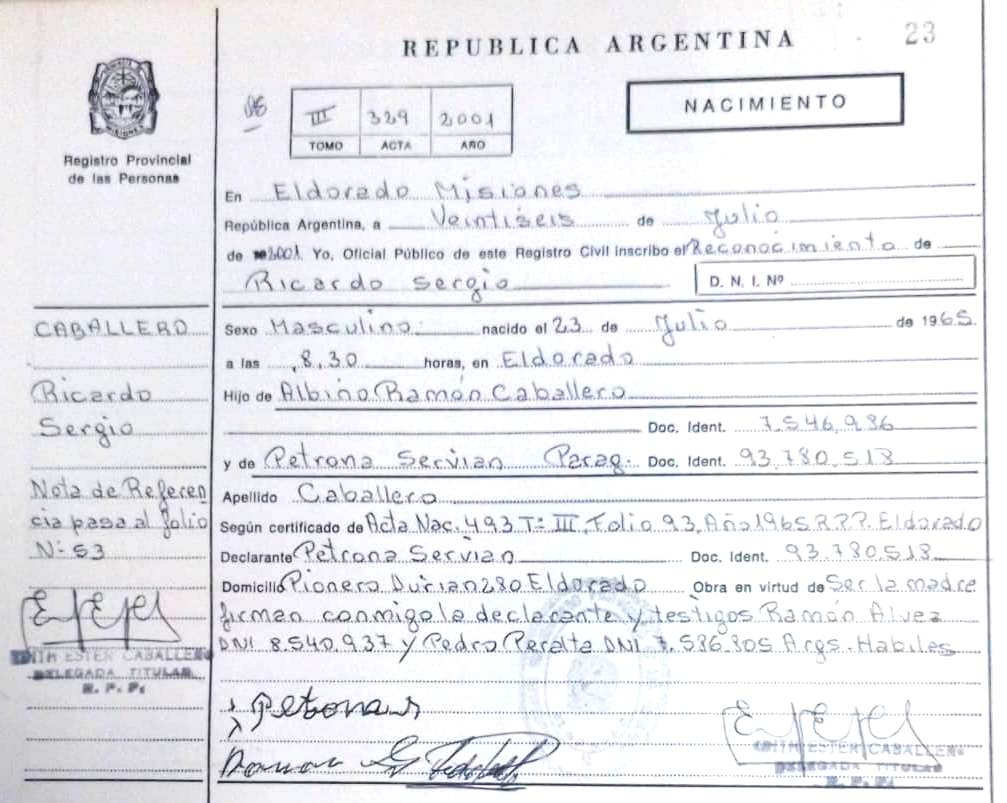 23
REPUBLICA ARGENTINA
NACIMIENTO
III 329 2001
TOMO ACTA AÑO
Registro Provincial
de las Personas
En Eldorado Misiones
República Argentina, a Veintiseis de Julio
de 2001 Yo, Oficial Público de este Registro Civil inscribo el Reconocimiento de
Ricardo Sergio
D. N. I. Nº
CABALLERO
Ricardo
Sergio
Nota de Referen
cia pasa al folio
Nº 53
EDITH ESTER CABALLERO
DELEGADA TITULAR
R. P. P.
Sexo Masculino nacido el 23 de Julio de 1965.
a las 8,30 horas, en Eldorado
Hijo de Albino Ramón Caballero
Doc. Ident. 7.546.986
y de Petrona Servian Parag. Doc. Ident. 93.780.518
Apellido Caballero
Según certificado de Acta Nac. 493 Tº III, Folio 93, Año 1965 R.P.P. Eldorado
Declarante Petrona Servian Doc. Ident. 93.780.518
Domicilio Pionero Durian 280 Eldorado Obra en virtud de Ser la madre
firman conmigo la declarante y testigos Ramón Alvez
DNI 8.540.937 y Pedro Peralta DNI 7.586.805 Args. Habiles
Petrona S
Ramon
EDITH ESTER CABALLERO
DELEGADA TITULAR
R. P. P.